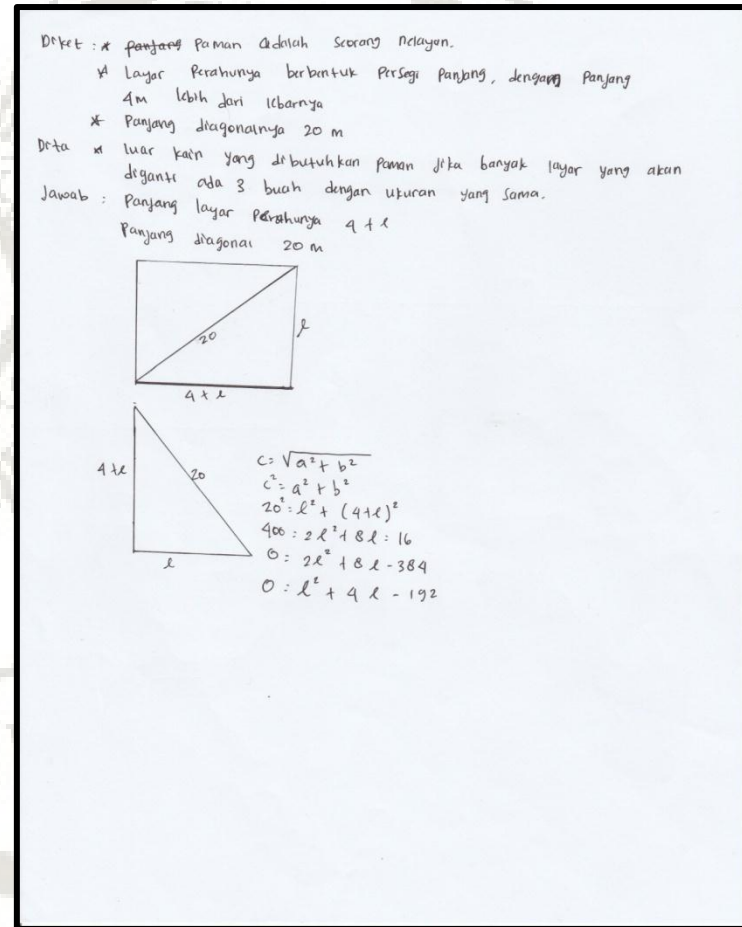 Diket : * panjang Paman adalah seorang nelayan.
* Layar Perahunya berbentuk Persegi Panjang, dengan Panjang
4m lebih dari lebarnya
* Panjang diagonalnya 20 m
Dita * luar kain yang dibutuhkan paman jika banyak layar yang akan
diganti ada 3 buah dengan ukuran yang sama.
Jawab : Panjang layar Perahunya 4 + l
Panjang diagonal 20 m
20
l
4 + l
4 + l
20
l
c = √a² + b²
c² = a² + b²
20² = l² + (4 + l)²
400 = 2l² + 8l = 16
0 = 2l² + 8l - 384
0 = l² + 4l - 192